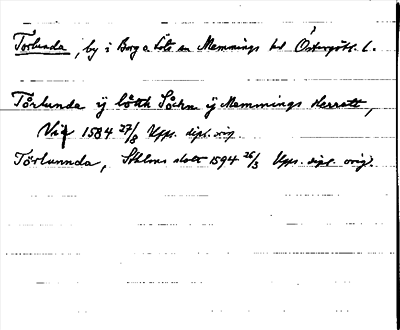 Torlunda, by i Borg o Löts sn Memmings hd Östergötl. l.
Tårlunda ÿ lötth Såckn ÿ Memmings Herratt,
1584 27/8 Upps. dipl. orig
Törlunnda, Sthlms slott 1594 26/3 Upps. dipl. orig.